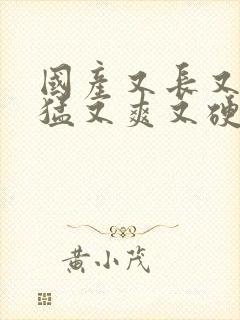 國產又長又
猛又爽又硬
黄小茂